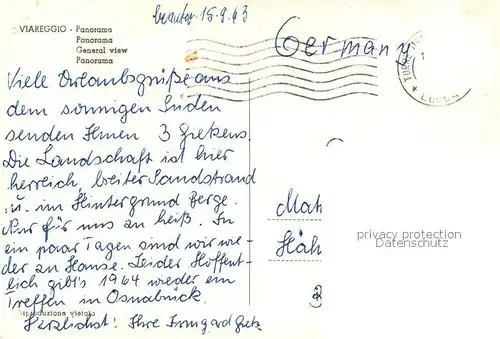 VIAREGGIO - Panorama
Panorama
General view
Panorama
15.9.63
Germany
Viele Urlaubsgrüße aus
dem sonnigen Süden
senden Ihnen 3 Grekens.
Die Landschaft ist hier
herrlich, breiter Sandstrand
u. im Hintergrund Berge.
Nur für uns an heiß. In
ein paar Tagen sind wir wie-
der zu Hause. Leider Hoffent-
lich gibt's 1964 wieder ein
Treffen in Osnabrück.
Herzlichst! Ihre Irmgard
Mat
Häh
privacy protection
Datenschutz
Riproduzione vietata